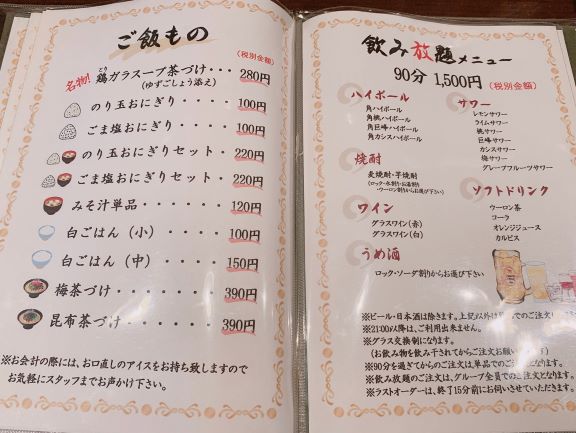 ご飯もの
(税別金額)
名物! 鶏ガラスープ茶づけ・・・280円
とり
(ゆずごしょう添え)
のり玉おにぎり・・・・100円
ごま塩おにぎり・・・・・100円
のり玉おにぎりセット・220円
ごま塩おにぎりセット・・220円
みそ汁単品・・・・・・120円
白ごはん(小)・・・・・100円
白ごはん(中)・・・・・150円
梅茶づけ・・・・・・・390円
昆布茶づけ・・・・・・390円
※お会計の際には、お口直しのアイスをお持ち致しますので
お気軽にスタッフまでお声かけ下さい。
飲み放題メニュー
90分 1,500円 (税別金額)
ハイボール
角ハイボール
角桃ハイボール
角巨峰ハイボール
角カシスハイボール
焼酎
麦焼酎・芋焼酎
(ロック・水割り・お湯割り
ウーロン割りからお選び下さい)
ワイン
グラスワイン(赤)
グラスワイン(白)
うめ酒
ロック・ソーダ割りからお選び下さい
サワー
レモンサワー
ライムサワー
桃サワー
巨峰サワー
カシスサワー
グレープフルーツサワー
ソフトドリンク
ウーロン茶
コーラ
オレンジジュース
カルピス
※ビール・日本酒は除きます。上記以外は
※21:00以降は、ご利用出来ません。
※グラス交換制になります。
(お飲み物を飲み干されてからご注文お願い
※90分を過ぎてからのご注文は単品でのご注文となります。
※飲み放題のご注文は、グループ全員でのご注文となります。
※ラストオーダーは、終了15分前にお伺いさせていただきます。